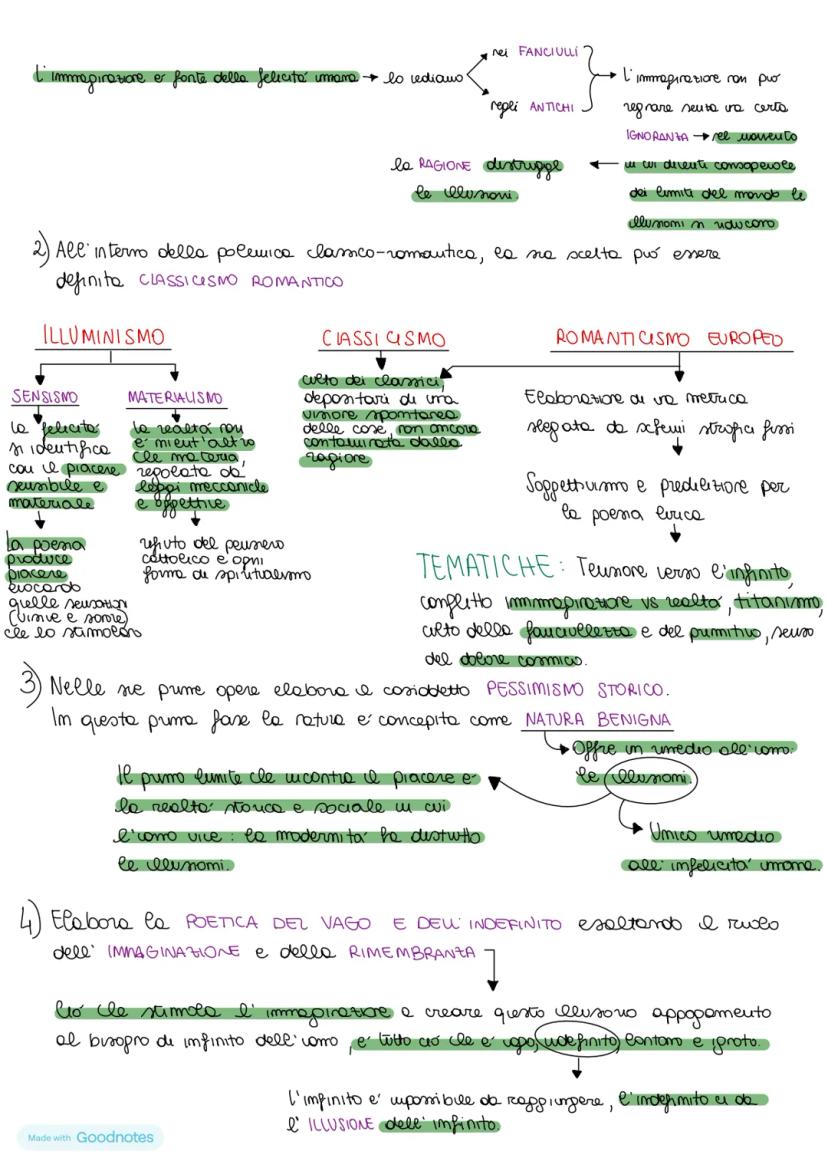 L'immaginazione è fonte della felicità umana → lo vediamo
nei FANCIULLI
negli ANTICHI
L'immaginazione non può
regnare senza una certa
IGNORANZA → nel momento
in cui diventi consapevole
dei limiti del mondo le
illusioni si riducono
la RAGIONE distrugge
le illusioni.
2) All'interno della polemica classico-romantica, la sua scelta può essere
definita CLASSICISMO ROMANTICO
ILLUMINISMO
SENSISMO
la felicità
si identifica
con il piacere
sensibile e
materiale
La poesia
produce
piacere
evocando
quelle sensazioni
(visive e sonore)
che lo stimolano
MATERIALISMO
la realtà non
è nient'altro
che materia,
regolata da
leggi meccaniche
e oggettive
rifiuto del pensiero
cattolico e ogni
forma di spiritualismo
CLASSICISMO
culto dei classici,
depositari di una
visione spontanea
delle cose, non ancora
contaminata dalla
ragione
ROMANTICISMO EUROPEO
Elaborazione di una metrica
slegata da schemi strofici fissi
Soggettivismo e predilezione per
la poesia lirica
TEMATICHE: Tensione verso l'infinito,
conflitto immmaginazione vs realtà, titanismo,
culto della fanciullezza e del primitivo, senso
del dolore cosmico.
3) Nelle sue prime opere elabora il cosiddetto PESSIMISMO STORICO.
In questa prima fase la natura è concepita come NATURA BENIGNA
Offre un rimedio all'uomo:
le illusioni.
Il primo limite che incontra il piacere è
la realtà storica e sociale in cui
l'uomo vive: la modernità ha distrutto
le illusioni.
Unico rimedio
all'infelicità umana.
4) Elabora la POETICA DEL VAGO E DELL'INDEFINITO esaltando il ruolo
dell'IMMAGINAZIONE e della RIMEMBRANZA
Ciò che stimola l'immaginazione a creare questo illusorio appagamento
al bisogno di infinito dell'uomo, è tutto ciò che è vago, indefinito, lontano e ignoto.
L'infinito è impossibile da raggiungere, l'indefinito ci dà
l'ILLUSIONE dell'infinito
Made with Goodnotes